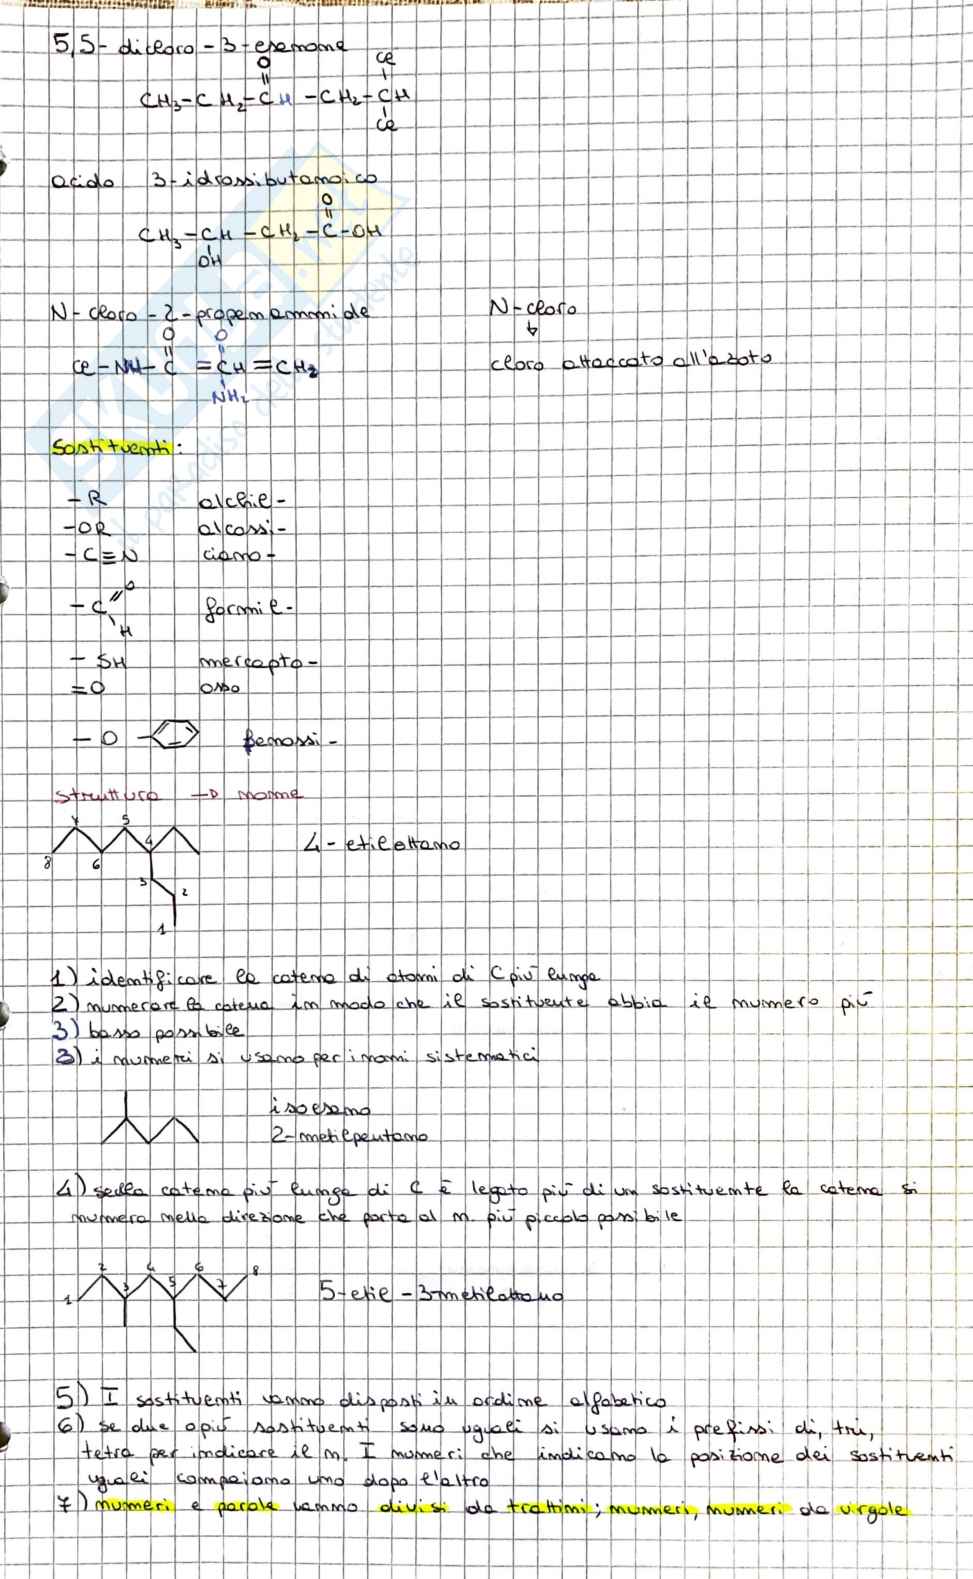 5,5-dicloro-3-esanone
O Cl
CH₃-CH₂-CH-CH₂-CH
Cl
acido 3-idrossibutanoico
O
CH₃-CH-CH₂-C-OH
OH
N-cloro-2-propenammide N-cloro
O O
Cl-NH-C=CH=CH₂ cloro attaccato all'azoto
NH₂
Sostituenti:
-R alchil-
-OR alcossi-
-C≡N ciano-
O
-C formil-
H
-SH mercapto-
=O osso
-O- fenossi-
struttura → nome
7 5
4 4-etilottano
8 6
3 2
1
1) identificare la catena di atomi di C più lunga
2) numerare la catena in modo che il sostituente abbia il numero più
3) basso possibile
3) i numeri si usano per i nomi sistematici
isoesano
2-metilpentano
4) sella catena più lunga di C è legato più di un sostituente la catena si
numera nella direzione che porta al n. più piccolo possibile
2 4 6 8
1 3 5 7 5-etil-3-metilottano
5) I sostituenti vanno disposti in ordine alfabetico
6) se due o più sostituenti sono uguali si usano i prefissi di, tri,
tetra per indicare il n. I numeri che indicano la posizione dei sostituenti
uguali compaiono uno dopo l'altro
7) numeri e parole vanno divisi da trattini; numeri, numeri da virgole